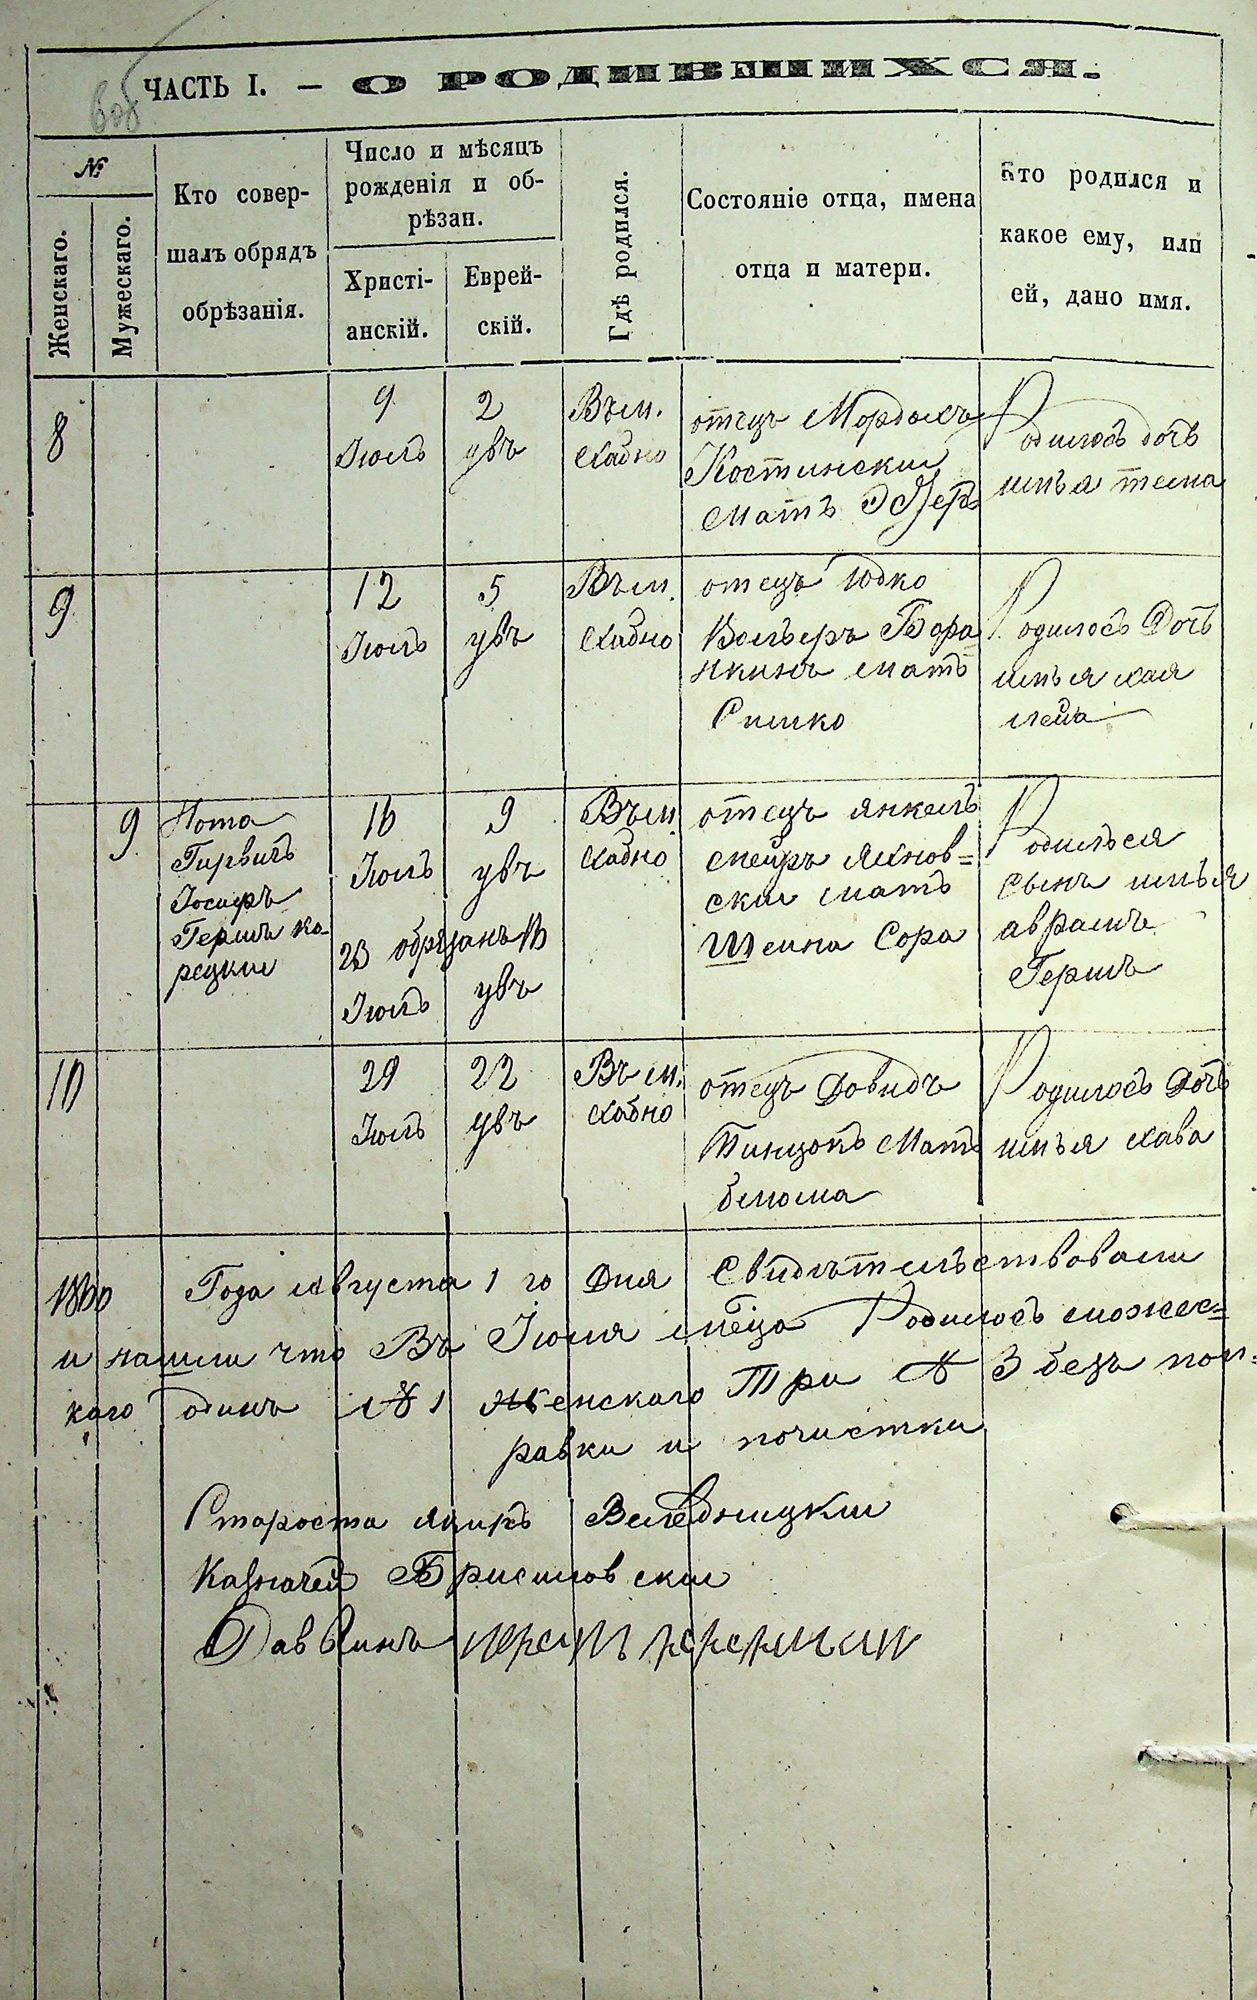 ЧАСТЬ I. — О РОДИВШИХСЯ.
№
Женскаго.
Мужескаго.
Кто совер-
шалъ обрядъ
обрѣзанія.
Число и мѣсяцъ
рожденія и об-
рѣзан.
Христі-
анскій.
Еврей-
скій.
Гдѣ родился.
Состояніе отца, имена
отца и матери.
Кто родился и
какое ему, или
ей, дано имя.
8
9
Июль
2
увъ
Въ м.
Хабно
отецъ Мордыхъ
Костински
Мать
Родилось дочь
имья
9
12
Июль
5
увъ
Въ м.
Хабно
отецъ Юдко
Вольеръ Бора
нкинъ мать
Симко
Родилось Дочь
имья хая
лейа
9
Нота
Гирвичъ
Іосифъ
Гершъ Ко-
рецки
16
Июль
23 обрезанъ
Июль
9
увъ
16
увъ
Въ м
Хабно
отецъ янкель
мейръ Яхнов=
ски мать
Шейна Сора
Родилься
сынъ имья
аврамъ
Гершъ
10
29
Июль
22
увъ
Въ м.
Хабно
отецъ Довидъ
Тинцокъ Мать
блюма
Родилось Дочь
имья хава
1860 Года августа 1 го Дня Свидѣтельствовали
и нашли что Въ Июля мѣца Родилось можес=
кого одинъ № 1 женскаго Три № 3 безъ поп-
равки и почистки
Староста Ицикъ Веледницки
Казначей Брисиловски
Раввинъ